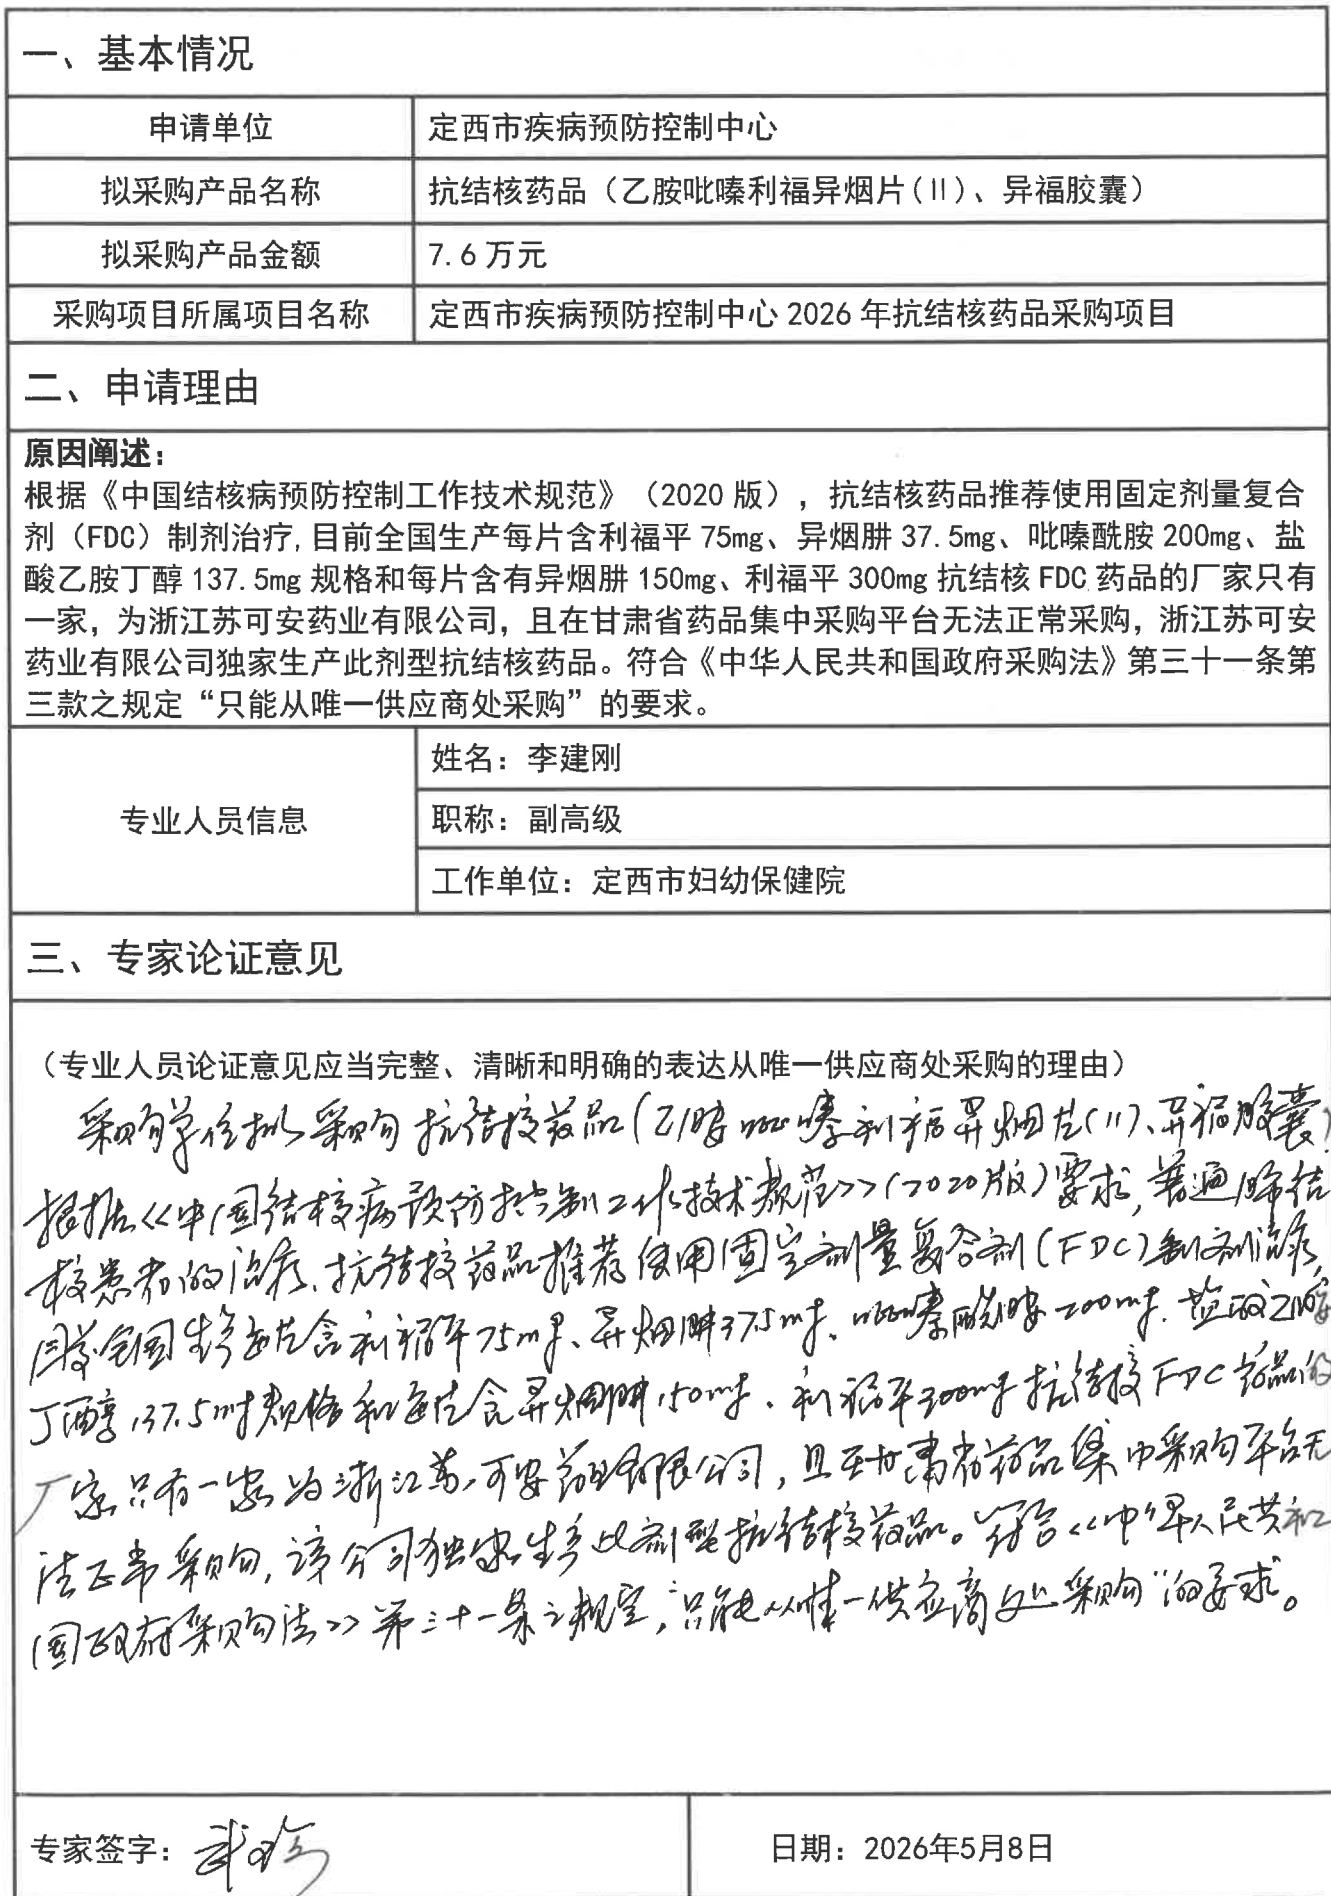 一、基本情况
申请单位 定西市疾病预防控制中心
拟采购产品名称 抗结核药品（乙胺吡嗪利福异烟片(II)、异福胶囊）
拟采购产品金额 7.6万元
采购项目所属项目名称 定西市疾病预防控制中心2026年抗结核药品采购项目
二、申请理由
原因阐述：
根据《中国结核病预防控制工作技术规范》（2020版），抗结核药品推荐使用固定剂量复合
剂（FDC）制剂治疗,目前全国生产每片含利福平75mg、异烟肼37.5mg、吡嗪酰胺200mg、盐
酸乙胺丁醇137.5mg规格和每片含有异烟肼150mg、利福平300mg抗结核FDC药品的厂家只有
一家，为浙江苏可安药业有限公司，且在甘肃省药品集中采购平台无法正常采购，浙江苏可安
药业有限公司独家生产此剂型抗结核药品。符合《中华人民共和国政府采购法》第三十一条第
三款之规定“只能从唯一供应商处采购”的要求。
专业人员信息
姓名：李建刚
职称：副高级
工作单位：定西市妇幼保健院
三、专家论证意见
（专业人员论证意见应当完整、清晰和明确的表达从唯一供应商处采购的理由）
采购单位拟采购抗结核药品(乙胺吡嗪利福异烟片(II)、异福胶囊)
根据《中国结核病预防控制工作技术规范》(2020版)要求,普通肺结
核患者的治疗,抗结核药品推荐使用固定剂量复合剂(FDC)制剂治疗,
目前全国生产每片含利福平75mg、异烟肼37.5mg、吡嗪酰胺200mg、盐酸乙胺
丁醇137.5mg规格和每片含异烟肼150mg、利福平300mg抗结核FDC药品的
厂家只有一家为浙江苏可安药业有限公司,且在甘肃省药品集中采购平台无
法正常采购,该公司独家生产此剂型抗结核药品。符合《中华人民共和
国政府采购法》第三十一条之规定,“只能从唯一供应商处采购”的要求。
专家签字：
日期：2026年5月8日